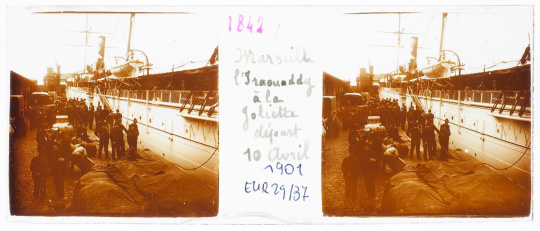 1842
Marseille
l'Iraouaddy
à la
Joliette
départ
10 Avril
1901
EUR29/37